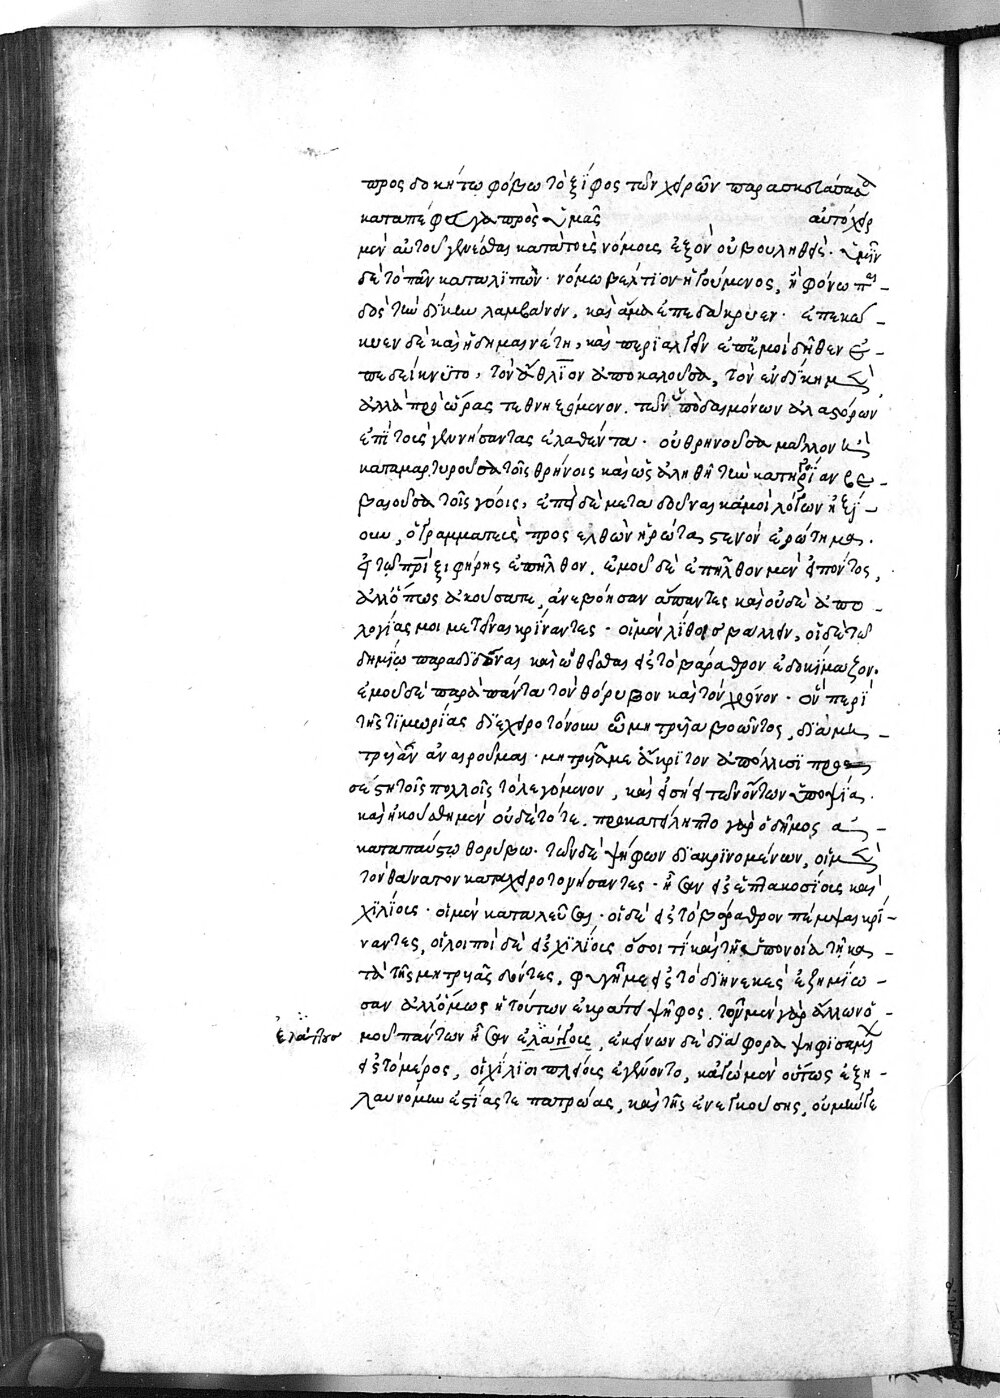 προσδοκήτω φόβω τὸ ξίφος τῶν χειρῶν παρασπασάμενος
καταπέφευγα πρὸς ὑμᾶς αὐτόχειρ
μὲν αὐτοῦ γενέσθαι κατὰ τοὺς νόμους ἐξὸν οὐ βουληθείς. ὑμῖν
δὲ τὸ πᾶν καταλϊπών· νόμω βέλτϊον ἡγούμενος, ἢ φόνω παι-
δὸς τὴν δίκην λαμβάνειν, καὶ ἅμα ἐπεδάκρυεν· ἐπεκώ-
κυεν δὲ καὶ ἡ δημαινέτη, καὶ περϊαλγεῖν ἐπ' ἐμοὶ δῆθεν ἐ-
πεδείκνυτο, τὸν ἄθλϊον ἀποκαλοῦσα, τὸν ἐνδίκως μὲν
ἀλλὰ πρὸ ὥρας τεθνηξόμενον. τῶν ὑπὸ δαιμόνων ἀλαστόρων
ἐπὶ τοὺς γεννήσαντας ἐλαθέντα· οὐ θρηνοῦσα μᾶλλον ἢ
καταμαρτυροῦσα τοῖς θρήνοις καὶ ὡς ἀληθῆ τὴν κατηγορίαν βε-
βαιοῦσα τοῖς γόοις, ἐπεὶ δὲ μεταδοῦναι κἀμοὶ λόγων ἠξί-
ουν, ὁ γραμματεὺς προσελθὼν ἠρώτα στενὸν ἐρώτημα.
εἰ τῶ πρὶ ξιφήρης ἐπῆλθον. ἐμοῦ δὲ ἐπῆλθον μὲν εἰπόντος,
ἀλλ' ὅπως ἀκούσατε, ἀνεβόησαν ἅπαντες καὶ οὐδὲ ἀπο-
λογίας μοι μετεῖναι κρίναντες· οἱ μὲν λίθοις βάλλειν, οἱ δὲ τῶ
δημίω παραδϊδόναι καὶ ὠθεῖσθαι εἰς τὸ βάραθρον ἐδοκίμαζον.
ἐμοῦ δὲ παρὰ πάντα τὸν θόρυβον καὶ τὸν χρόνον· ὃν περὶ
τῆς τιμωρίας διεχειροτόνουν ὦ μητρυιὰ βοῶντος, διὰ μη-
τρυιὰν ἀναιροῦμαι· μητρυιά με ἄκριτον ἀπόλλυσϊ προ
σέστη τοῖς πολλοῖς τὸ λεγόμενον, καὶ εἰσήει τῶν ὄντων ὑποψία.
καὶ ἠκούσθην μὲν οὐδὲ τότε. προκατείληπτο γὰρ ὁ δῆμος ἀ-
καταπαύστω θορύβω· τῶν δὲ ψήφων διακρινομένων, οἱ μὲν
τὸν θάνατον καταχειροτονήσαντες· ἦσαν εἰς ἑπτακοσίους καὶ
χϊλίους· οἱ μὲν καταλεῦσαι· οἱ δὲ εἰς τὸ βάραθρον πέμψαι κρί-
ναντες, οἱ λοιποὶ δὲ εἰς χϊλίους ὅσοι τὶ καὶ τῆς ὑπονοία τῆ κα-
τὰ τῆς μητρυιᾶς δόντες, φυγῆ με εἰς τὸ διηνεκὲς ἐζημίω-
σαν ἀλλ' ὅμως ἡ τούτων ἐκράτει ψῆφος. τοῦ μὲν γὰρ ἄλλων ὁ-
μοῦ πάντων ἦσαν ἐλάττους, ἐκείνων δὲ διάφορα ψηφισαμένων
ἐλάττους
εἰς τὸ μέρος, οἱ χίλϊοι πλείους ἐγένοντο, κἀγὼ μὲν οὕτως ἐξη-
λαυνόμην ἑστίας τε πατρώας, καὶ τῆς ἐνεγκούσης, οὐ μὴν γε